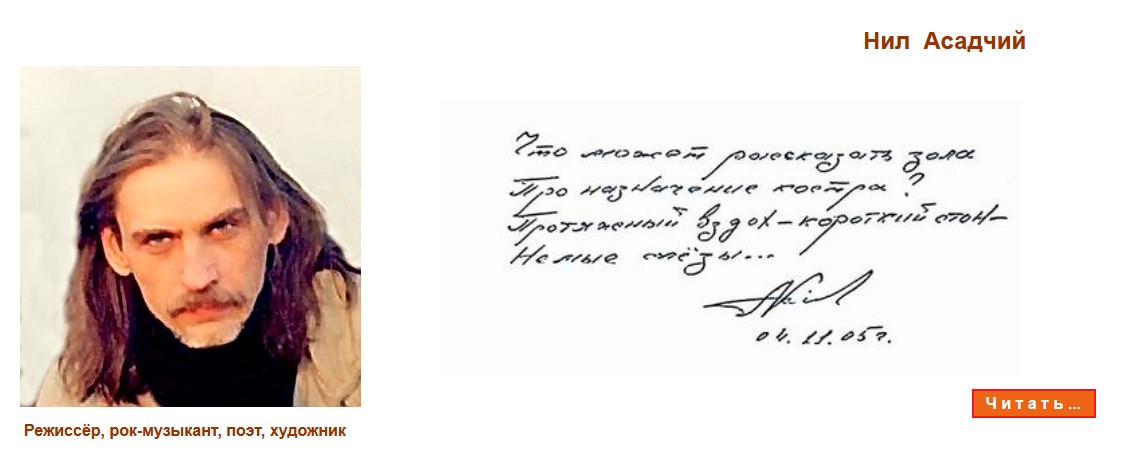 Нил Асадчий
Что может рассказать зола
Про назначение костра?
Протяжный вздох – короткий стон –
Немые слёзы...
04.11.05г.
Читать...
Режиссёр, рок-музыкант, поэт, художник